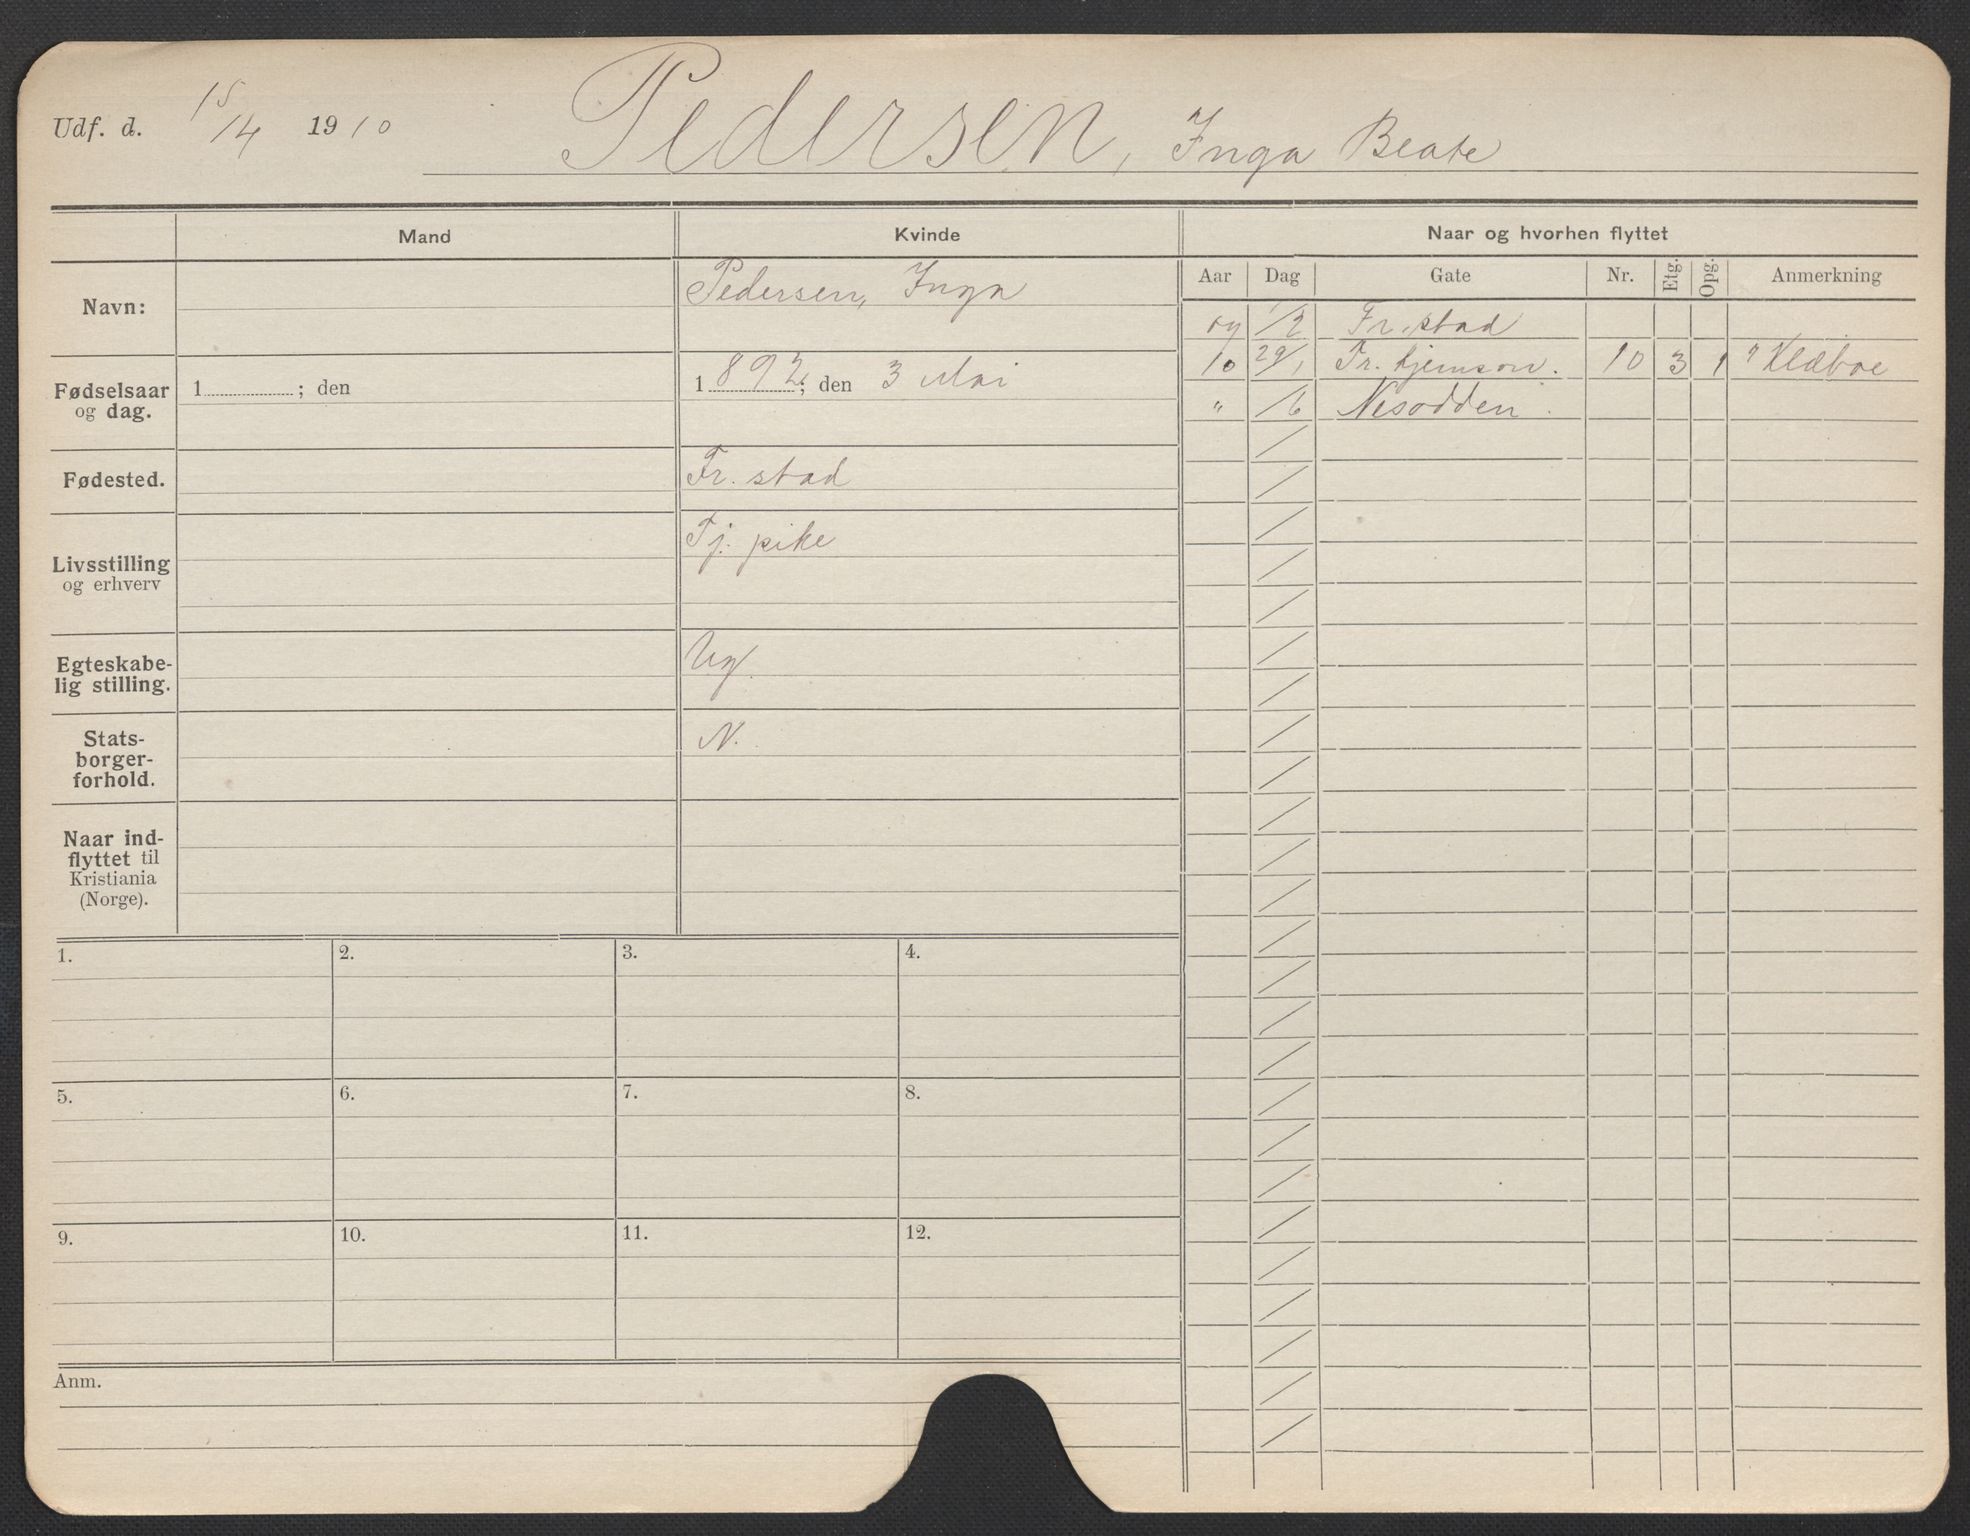 Udf. d. 15/4 1910 Pedersen, Inga Beate
Mand Kvinde Naar og hvorhen flyttet
Aar Dag Gate Nr. Etg. Opg. Anmerkning
Navn: Pedersen, Inga
09 1/2 Fr.stad
10 29/1 Fr. hjemson. 10 3 1 " Klæboe
" 1/6 Nesodden.
Fødselsaar
og dag.
1 ; den
1892; den 3 Mai
Fødested. Fr. stad
Livsstilling
og erhverv
Tj. pike
Egteskabe-
lig stilling.
Ug.
Stats-
borger-
forhold.
N.
Naar ind-
flyttet til
Kristiania
(Norge).
1. 2. 3. 4.
5. 6. 7. 8.
9. 10. 11. 12.
Anm.